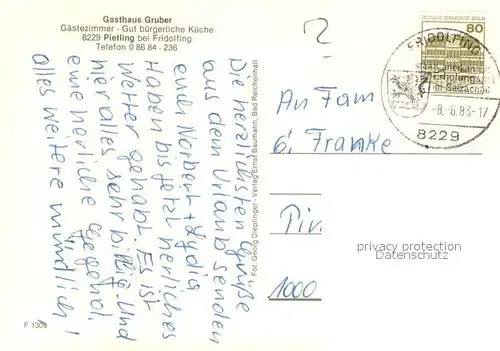 Gasthaus Gruber
Gästezimmer - Gut bürgerliche Küche
8229 Pietling bei Fridolfing
Telefon 0 86 84 - 236
?
DEUTSCHE BUNDESPOST BERLIN
80
FRIDOLFING
staatl. anerkannter
Erholungsort
im Salzachtal
-8.-6.83-17
8229
Die herzlichsten Grüße
aus dem Urlaub senden
euch Norbert + Lydia
Haben bis jetzt herliches
Wetter gehabt. Es ist
hier alles sehr billig. Und
eine herliche Gegend.
alles weitere mündlich!
Fot. Georg Dieplinger - Verlag Ernst Baumann, Bad Reichenhall
An Fam
G. Franke
1000
privacy protection
Datenschutz
F 1309